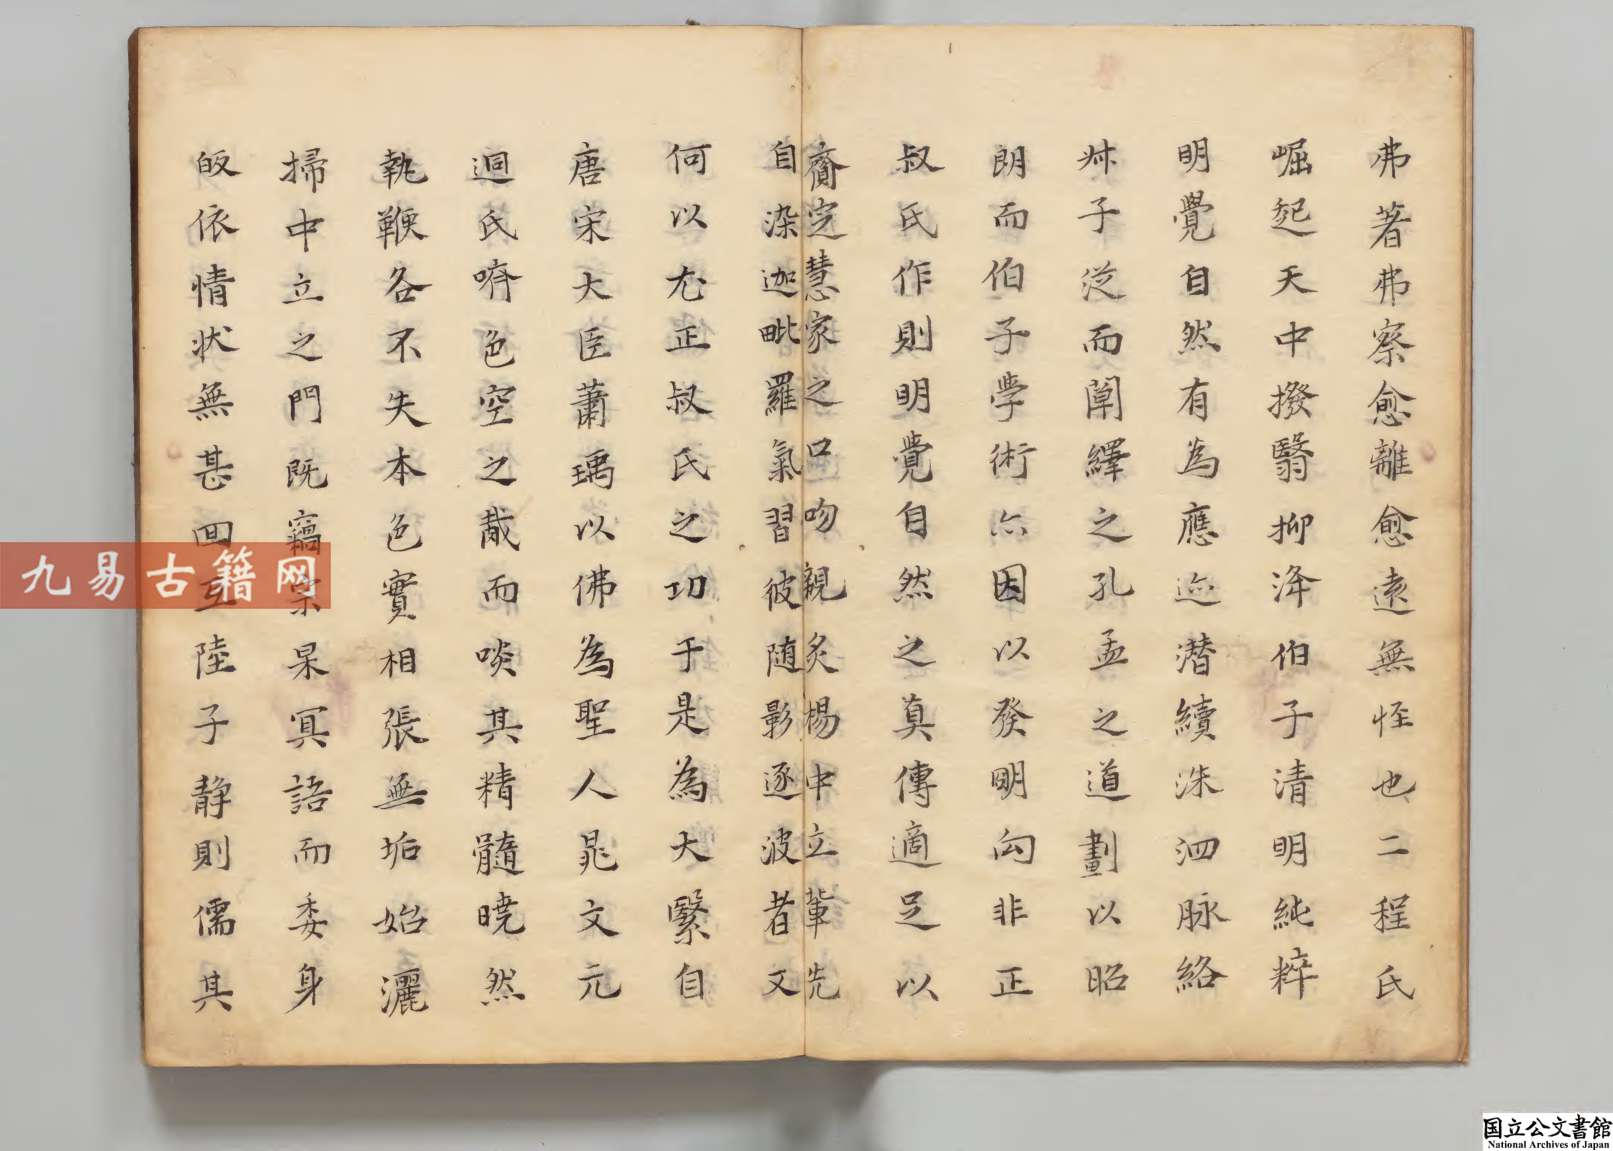 弗著弗察愈離愈遠無怪也二程氏
崛起天中撥翳抑洚伯子清明純粹
明覺自然有為應迹潜續洙泗脉絡
叔子從而闡繹之孔孟之道劃以昭
朗而伯子學術亦因以發明向非正
叔氏作則明覺自然之真傳適足以
齎定慧家之口吻親炙楊中立輩先
自染迦毗羅氣習彼随影逐波者又
何以尤正叔氏之功于是為大緊自
唐宋大臣蕭瑀以佛為聖人晁文元
迥氏嚌色空之胾而啖其精髓曉然
執鞭各不失本色實相張無垢始灑
掃中立之門既竊宗杲冥語而委身
皈依情状無甚回互陸子静則儒其
九易古籍网
国立公文書館
National Archives of Japan